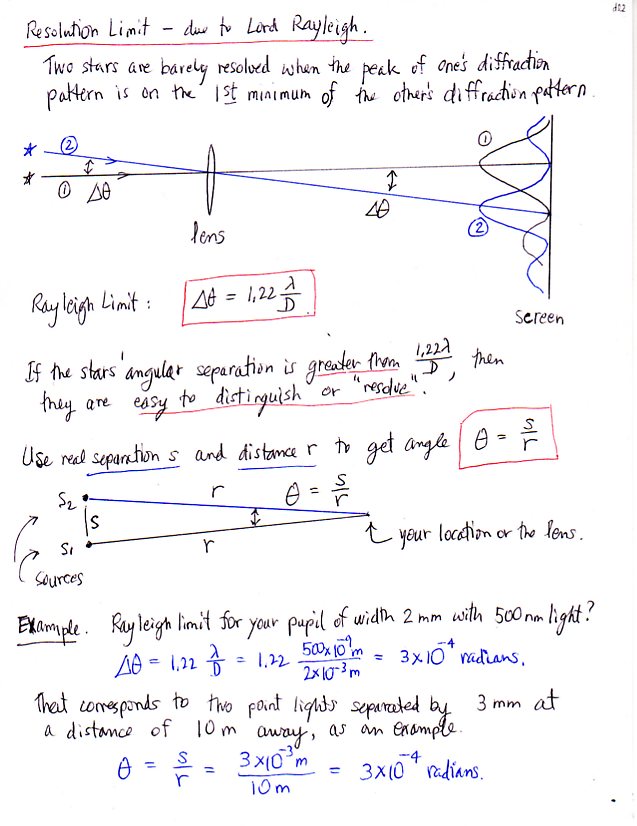 d22
Resolution Limit - due to Lord Rayleigh.
Two stars are barely resolved when the peak of one's diffraction
pattern is on the 1st minimum of the other's diffraction pattern.
②
① Δθ
lens
Δθ
①
②
screen
Rayleigh Limit : Δθ = 1.22 λ/D
If the stars' angular separation is greater than 1.22λ/D, then
they are easy to distinguish or "resolve".
Use real separation s and distance r to get angle θ = s/r
S2 r θ = s/r
s
S1 r
your location or the lens.
sources
Example. Rayleigh limit for your pupil of width 2 mm with 500 nm light?
Δθ = 1.22 λ/D = 1.22 500x10⁻⁹m/2x10⁻³m = 3x10⁻⁴ radians.
That corresponds to two point lights separated by 3 mm at
a distance of 10 m away, as an example.
θ = s/r = 3x10⁻³m/10m = 3x10⁻⁴ radians.